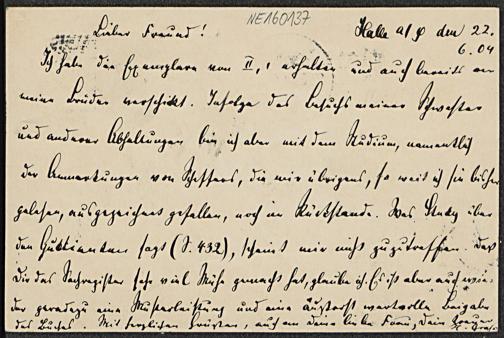 NE160137
Lieber Freund! Halle a/S den 22.
6.04
Ich habe die Exemplare von II, 1 erhalten und auch bereits an
meine Brüder verschickt. Infolge des Besuchs meiner Schwester
und anderer Abhaltungen bin ich aber mit dem Studium, namentlich
der Anmerkungen von Scheffers, die mir übrigens, so weit ich sie bisher
gelesen, ausgezeichnet gefallen, noch im Rückstande. Was Study über
den Gultianten sagt (S. 432), scheint mir nicht zuzutreffen. Daß
Dir das Sachregister sehr viel Mühe gemacht hat, glaube ich. Es ist aber auch wie-
der geradezu eine Musterleistung und eine äußerst wertvolle Zugabe
des Buches. Mit herzlichen Grüßen, auch an deine liebe Frau, Dein